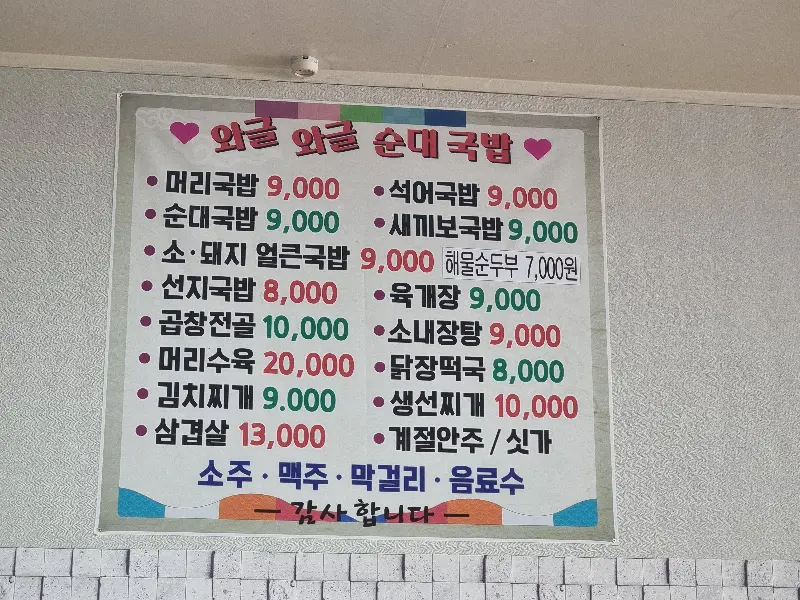 와글 와글 순대국밥
머리국밥 9,000
순대국밥 9,000
소·돼지 얼큰국밥 9,000
선지국밥 8,000
곱창전골 10,000
머리수육 20,000
김치찌개 9.000
삼겹살 13,000
석어국밥 9,000
새끼보국밥 9,000
해물순두부 7,000원
육개장 9,000
소내장탕 9,000
닭장떡국 8,000
생선찌개 10,000
계절안주 / 싯가
소주 · 맥주 · 막걸리 · 음료수
— 감사 합니다 —